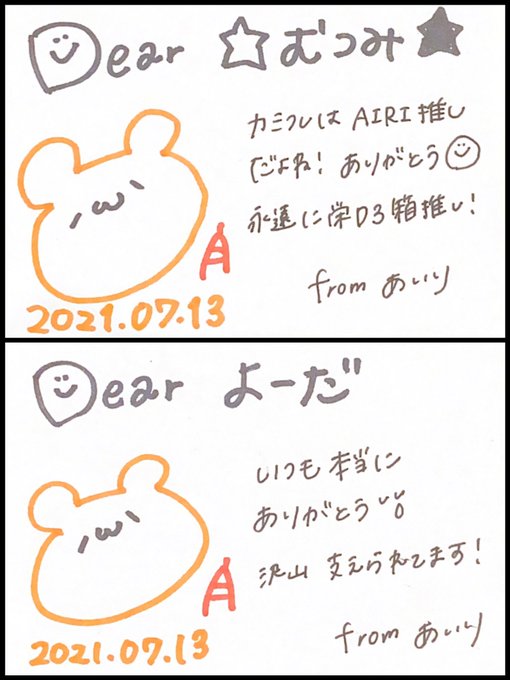 Dear ☆むつみ★
カミフレは AIRI推し
だよね! ありがとう
永遠に栄D3箱推し!
from あいり
2021.07.13
Dear よーだ
いつも本当に
ありがとう
沢山 支えられてます!
from あいり
2021.07.13